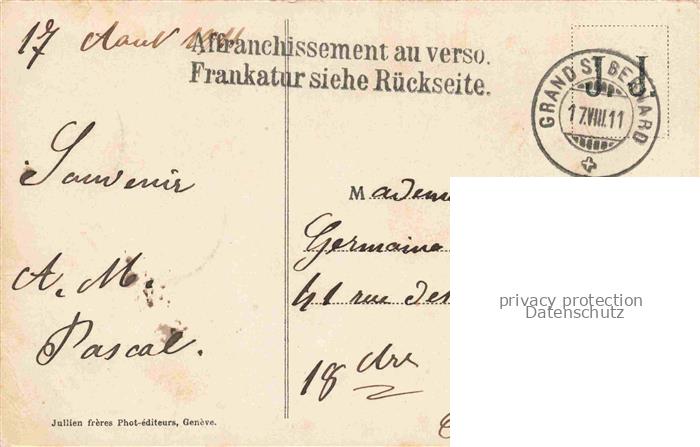 17 Aout 1911
Affranchissement au verso.
Frankatur siehe Rückseite.
J. J.
GRAND ST BERNARD
17.VIII.11
Souvenir
A. M.
Pascal.
Madem
Germaine
41 rue des
18 dre
privacy protection
Datenschutz
Jullien frères Phot-éditeurs, Genève.